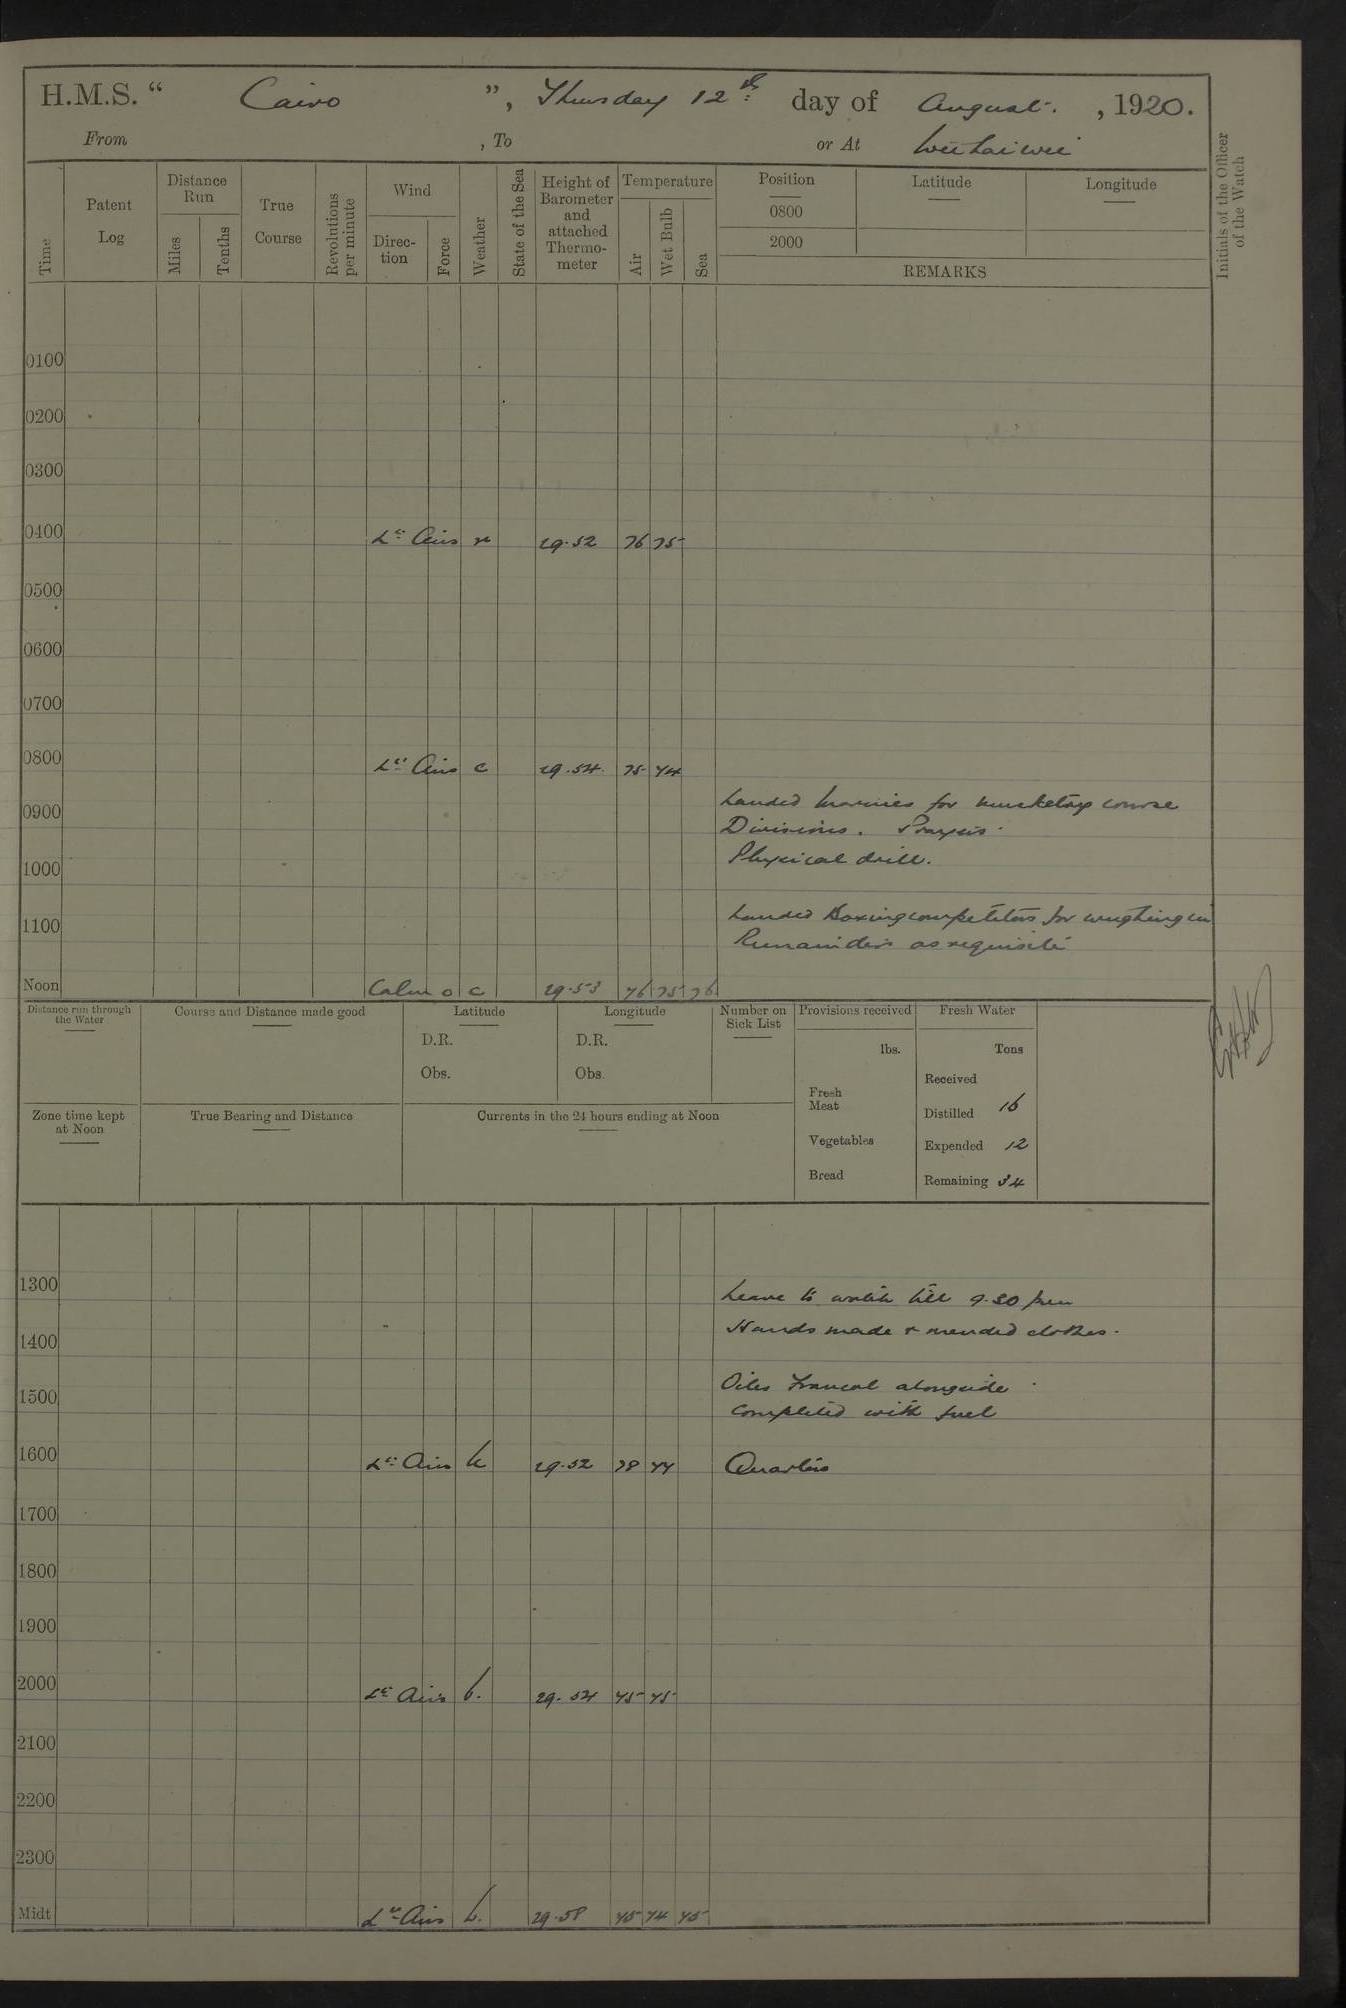 H.M.S. “ Cairo ”, Thursday 12th day of August , 1920.
From , To or At Wei hai wei
Time
Patent Log
Distance Run
Miles
Tenths
True Course
Revolutions per minute
Wind
Direc-tion
Force
Weather
State of the Sea
Height of Barometer and attached Thermo-meter
Temperature
Air
Wet Bulb
Sea
Position
Latitude
Longitude
0800
2000
REMARKS
Initials of the Officer of the Watch
0100
0200
0300
0400 Lt Airs r 29.52 76 75
0500
0600
0700
0800 Lt Airs c 29.54 75 74
Landed Marines for musketry course
0900
Divisions. Prayers.
Physical drill.
1000
Landed Boxing competitors for weighing in
1100
Remainder as requisite
Noon Calm 0 c 29.53 76 75 76
Distance run through the Water
Course and Distance made good
Latitude
D.R.
Obs.
Longitude
D.R.
Obs.
Number on Sick List
Provisions received
lbs.
Fresh Meat
Vegetables
Bread
Fresh Water
Tons
Received
Distilled 16
Expended 12
Remaining 34
Zone time kept at Noon
True Bearing and Distance
Currents in the 24 hours ending at Noon
1300
Leave to watch till 9.30 pm
Hands made & mended clothes.
1400
Oiler Francol alongside
1500
Completed with fuel
1600 Lt Airs 29.52 78 77 Quarters
1700
1800
1900
2000 Lt Airs b. 29.54 75 75
2100
2200
2300
Midt Lt Airs b. 29.58 75 74 75